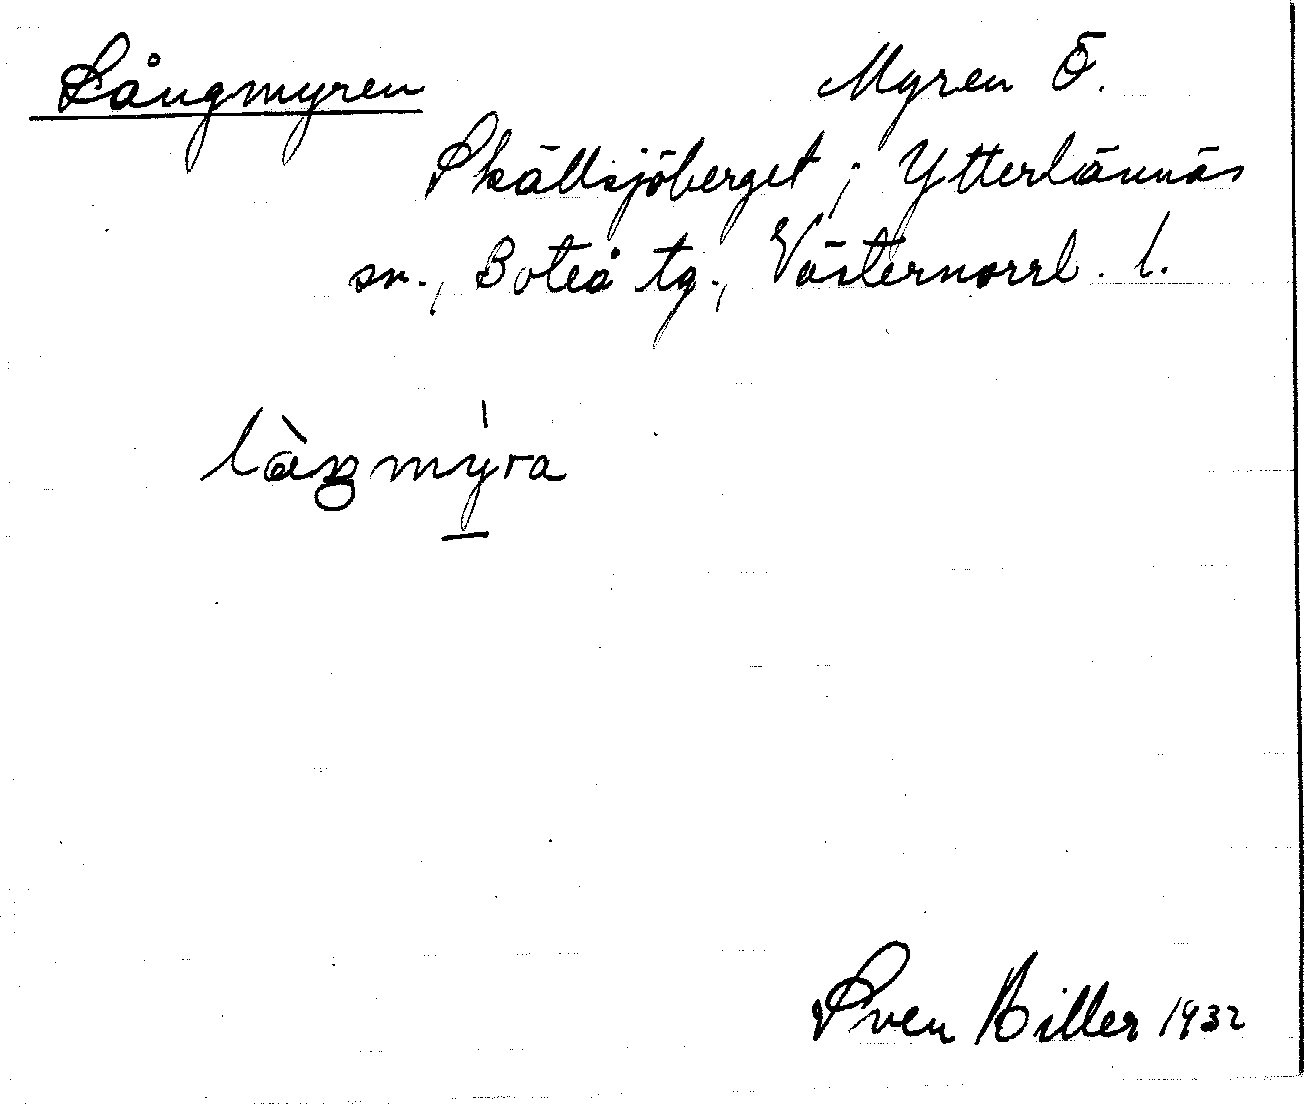 Långmyren Myren Ö.
Skällsjöberget ; Ytterlännäs
sn., Boteå tg., Västernorrl. l.
Sven Hiller 1932